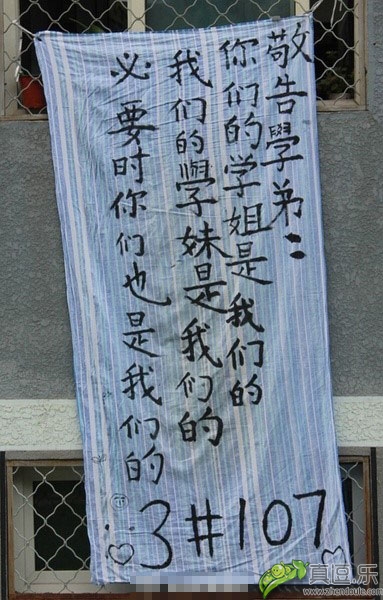 敬告學弟:
你们的学姐是我们的
我们的學妹是我们的
必要时你们也是我们的
3#107
真逗.乐
www.zhendoule.com